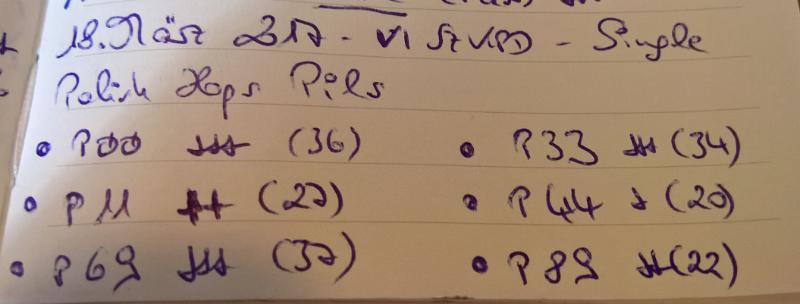 18. März 217 - VI St VPD - Single
Polish Hops Pils
• P00 +++ (36) • P33 +++ (34)
• P11 ++ (27) • P44 + (20)
• P69 +++ (37) • P89 ++ (22)